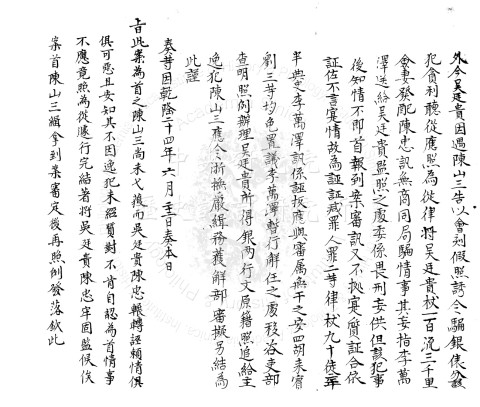 外今吳廷貴因遇陳山三告以會刻假照誘令騙銀俵分該
犯貪利聽從應照為從律將吳廷貴杖一百流三千里
僉妻發配陳忠訊無商同局騙情事其妄指李萬
澤送給吳廷貴監照之處委係畏刑妄供但該犯事
後知情不即首報到案審訊又不據實質証合依
証佐不言實情故為誣証減罪人罪二等律杖九十徒二年
半典史李萬澤訊係誣扳應與審屬無干之安四胡來賓
劉三等均免置議李萬澤暫行解任之處移咨吏部
查明照例辦理吳廷貴所得銀兩行文原籍照追給主
逸犯陳山三應令浙撫嚴緝務獲解部審擬另結為
此謹
奏等因乾隆二十四年六月十二日奏本日
旨此案為首之陳山三尚未弋獲而吳廷貴陳忠輾轉誣賴情俱
俱可惡且安知其不因逸犯未經質對不肯自認為首情事
不應竟照為從臕行完結著將吳廷貴陳忠牢固監候俟
案首陳山三緝拿到案審定後再照例發落欽此